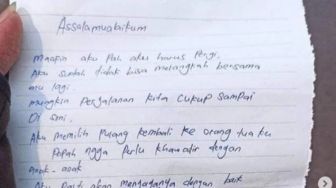 Assalamualaikum
Maafin aku Pah aku harus Pergi.
Aku sudah tidak bisa melangkah bersama
mu lagi
mungkin Perjalanan kita cukup sampai
Di sini.
Aku memilih pulang kembali ke orang tua ku
Papah ngga Perlu khawatir dengan
anak-anak
Aku Pasti akan menjaganya dengan baik